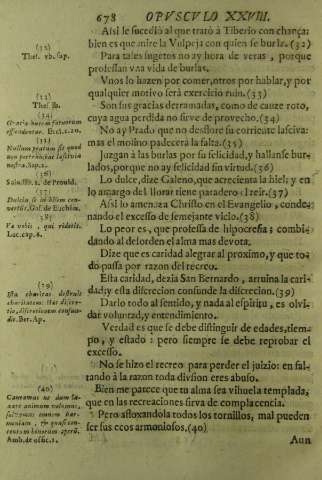 678 OPVSCVLO XXVIII.
Assi le sucediò al que tratò à Tiberio con chança:
bien es que mire la Vulpeja con quien se burla.(32)
Para tales sugetos no ay hora de veras, porque
professan vna vida de burlas.
Vnos lo hazen por comer, otros por hablar, y por
qualquier motivo serà exercicio ruin.(33)
Son sus gracias derramadas, como de cauze roto,
cuya agua perdida no sirve de provecho.(34)
No ay Prado que no desflore su corriente lasciva:
mas el molino padecerà la falta.(35)
Juzgan à las burlas por su felicidad, y hallanse bur-
lados, porque no ay felicidad sin virtud.(36)
Lo dulce, dize Galeno, que acrecienta la hiel: y en
lo amargo del llorar tiene paradero el reir.(37)
Assi lo amenaza Christo en el Evangelio, conde-
nando el excesso de semejante vicio.(38)
Lo peor es, que professa de hipocresia; combi-
dando al desorden el alma mas devota.
Dize que es caridad alegrar al proximo, y que to-
do passa por razon del recreo.
Esta caridad, dezia San Bernardo, arruina la cari-
dad: y esta discrecion confunde la discrecion.(39)
Darlo todo al sentido, y nada al espiritu, es olvi-
dar voluntad, y entendimiento.
Verdad es que se debe distinguir de edades, tiem-
po, y estado: pero siempre se debe reprobar el
excesso.
No se hizo el recreo para perder el juizio: en fal-
tando à la razon toda diversion eres abuso.
Bien me parece que tu alma sea vihuela templada,
que en las recreaciones sirva de complacencia.
Pero afloxandola todos los tornillos, mal pueden
ser sus ecos armoniosos.(40)
Aun
(32)
Thes. vb. sup.
(33)
Thes. ib.
(34)
Eccl. c. 20.
(35)
(36)
(37)
(38)
Væ vobis, qui ridetis.
Luc. cap. 6.
(39)
Ista charitas destruit
charitatem: hæc discre-
tio, discretionem confun-
dit. Ber. Ap.
(40)
Amb. de offic. 1.